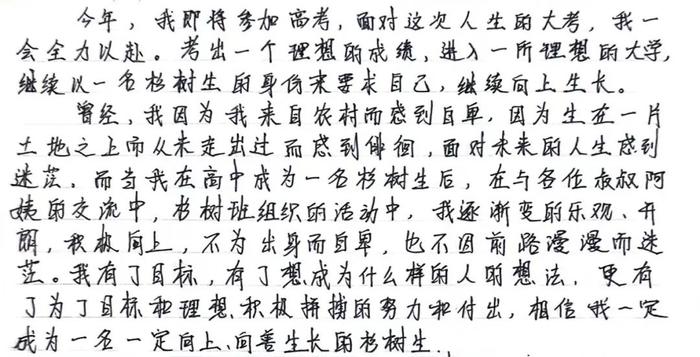 今年，我即将参加高考，面对这次人生的大考，我一
会全力以赴。考出一个理想的成绩，进入一所理想的大学，
继续以一名杉树生的身份来要求自己，继续向上生长。
曾经，我因为我来自农村而感到自卑，因为生在一片
土地之上而从未走出过而感到徘徊，面对未来的人生感到
迷茫。而当我在高中成为一名杉树生后，在与各位叔叔阿
姨的交流中，杉树班组织的活动中，我逐渐变的乐观、开
朗，积极向上，不为出身而自卑，也不因前路漫漫而迷
茫。我有了目标，有了想成为什么样的人的想法，更有
了为了目标和理想积极拼搏的努力和付出，相信我一定
成为一名一定向上、向善生长的杉树生.